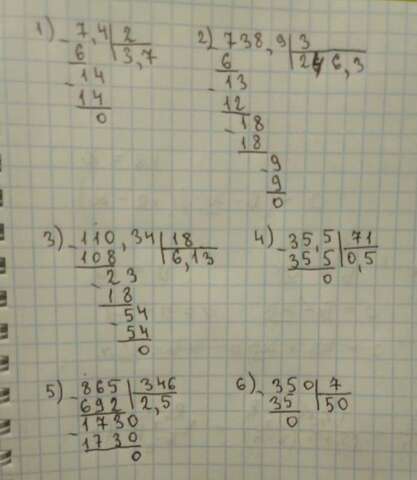 1) - 7,4 | 2
6 | 3,7
- 14
14
0
2) - 738,9 | 3
6 | 246,3
- 13
12
- 18
18
- 9
9
0
3) - 110,34 | 18
108 | 6,13
- 23
18
- 54
54
0
4) - 35,5 | 71
35 5 | 0,5
0
5) - 865 | 346
692 | 2,5
- 1730
1730
0
6) - 350 | 7
35 | 50
0